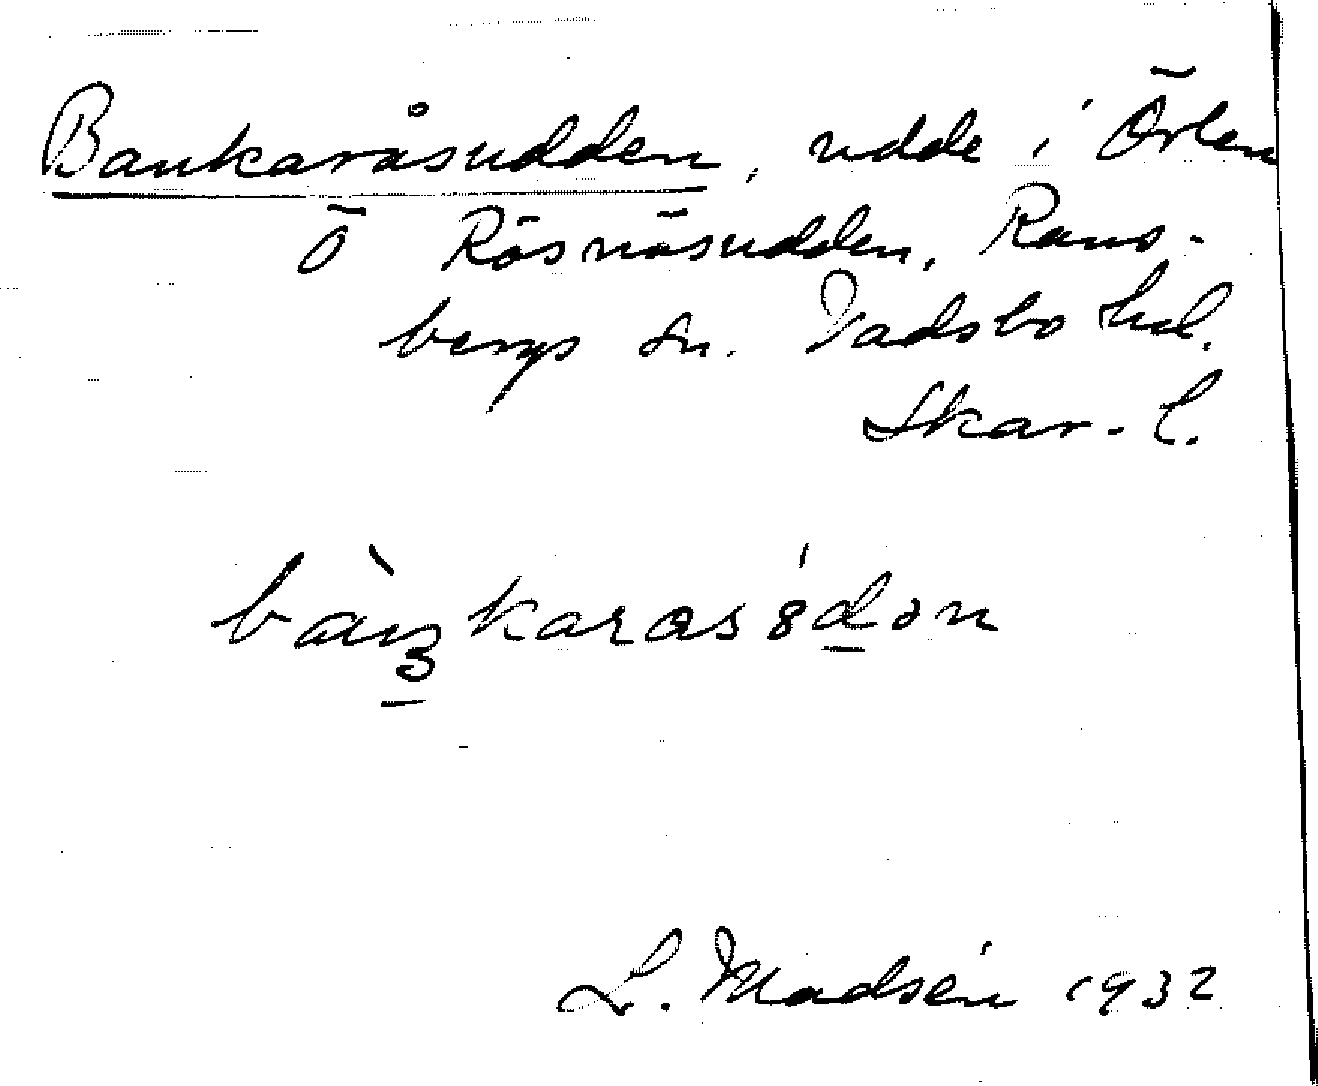 Bankaråsudden, udde i Örlen
Ö Rösnäsudden, Rans-
bergs sn. Vadsbo hd.
Skar. l.
L. Madsén 1932